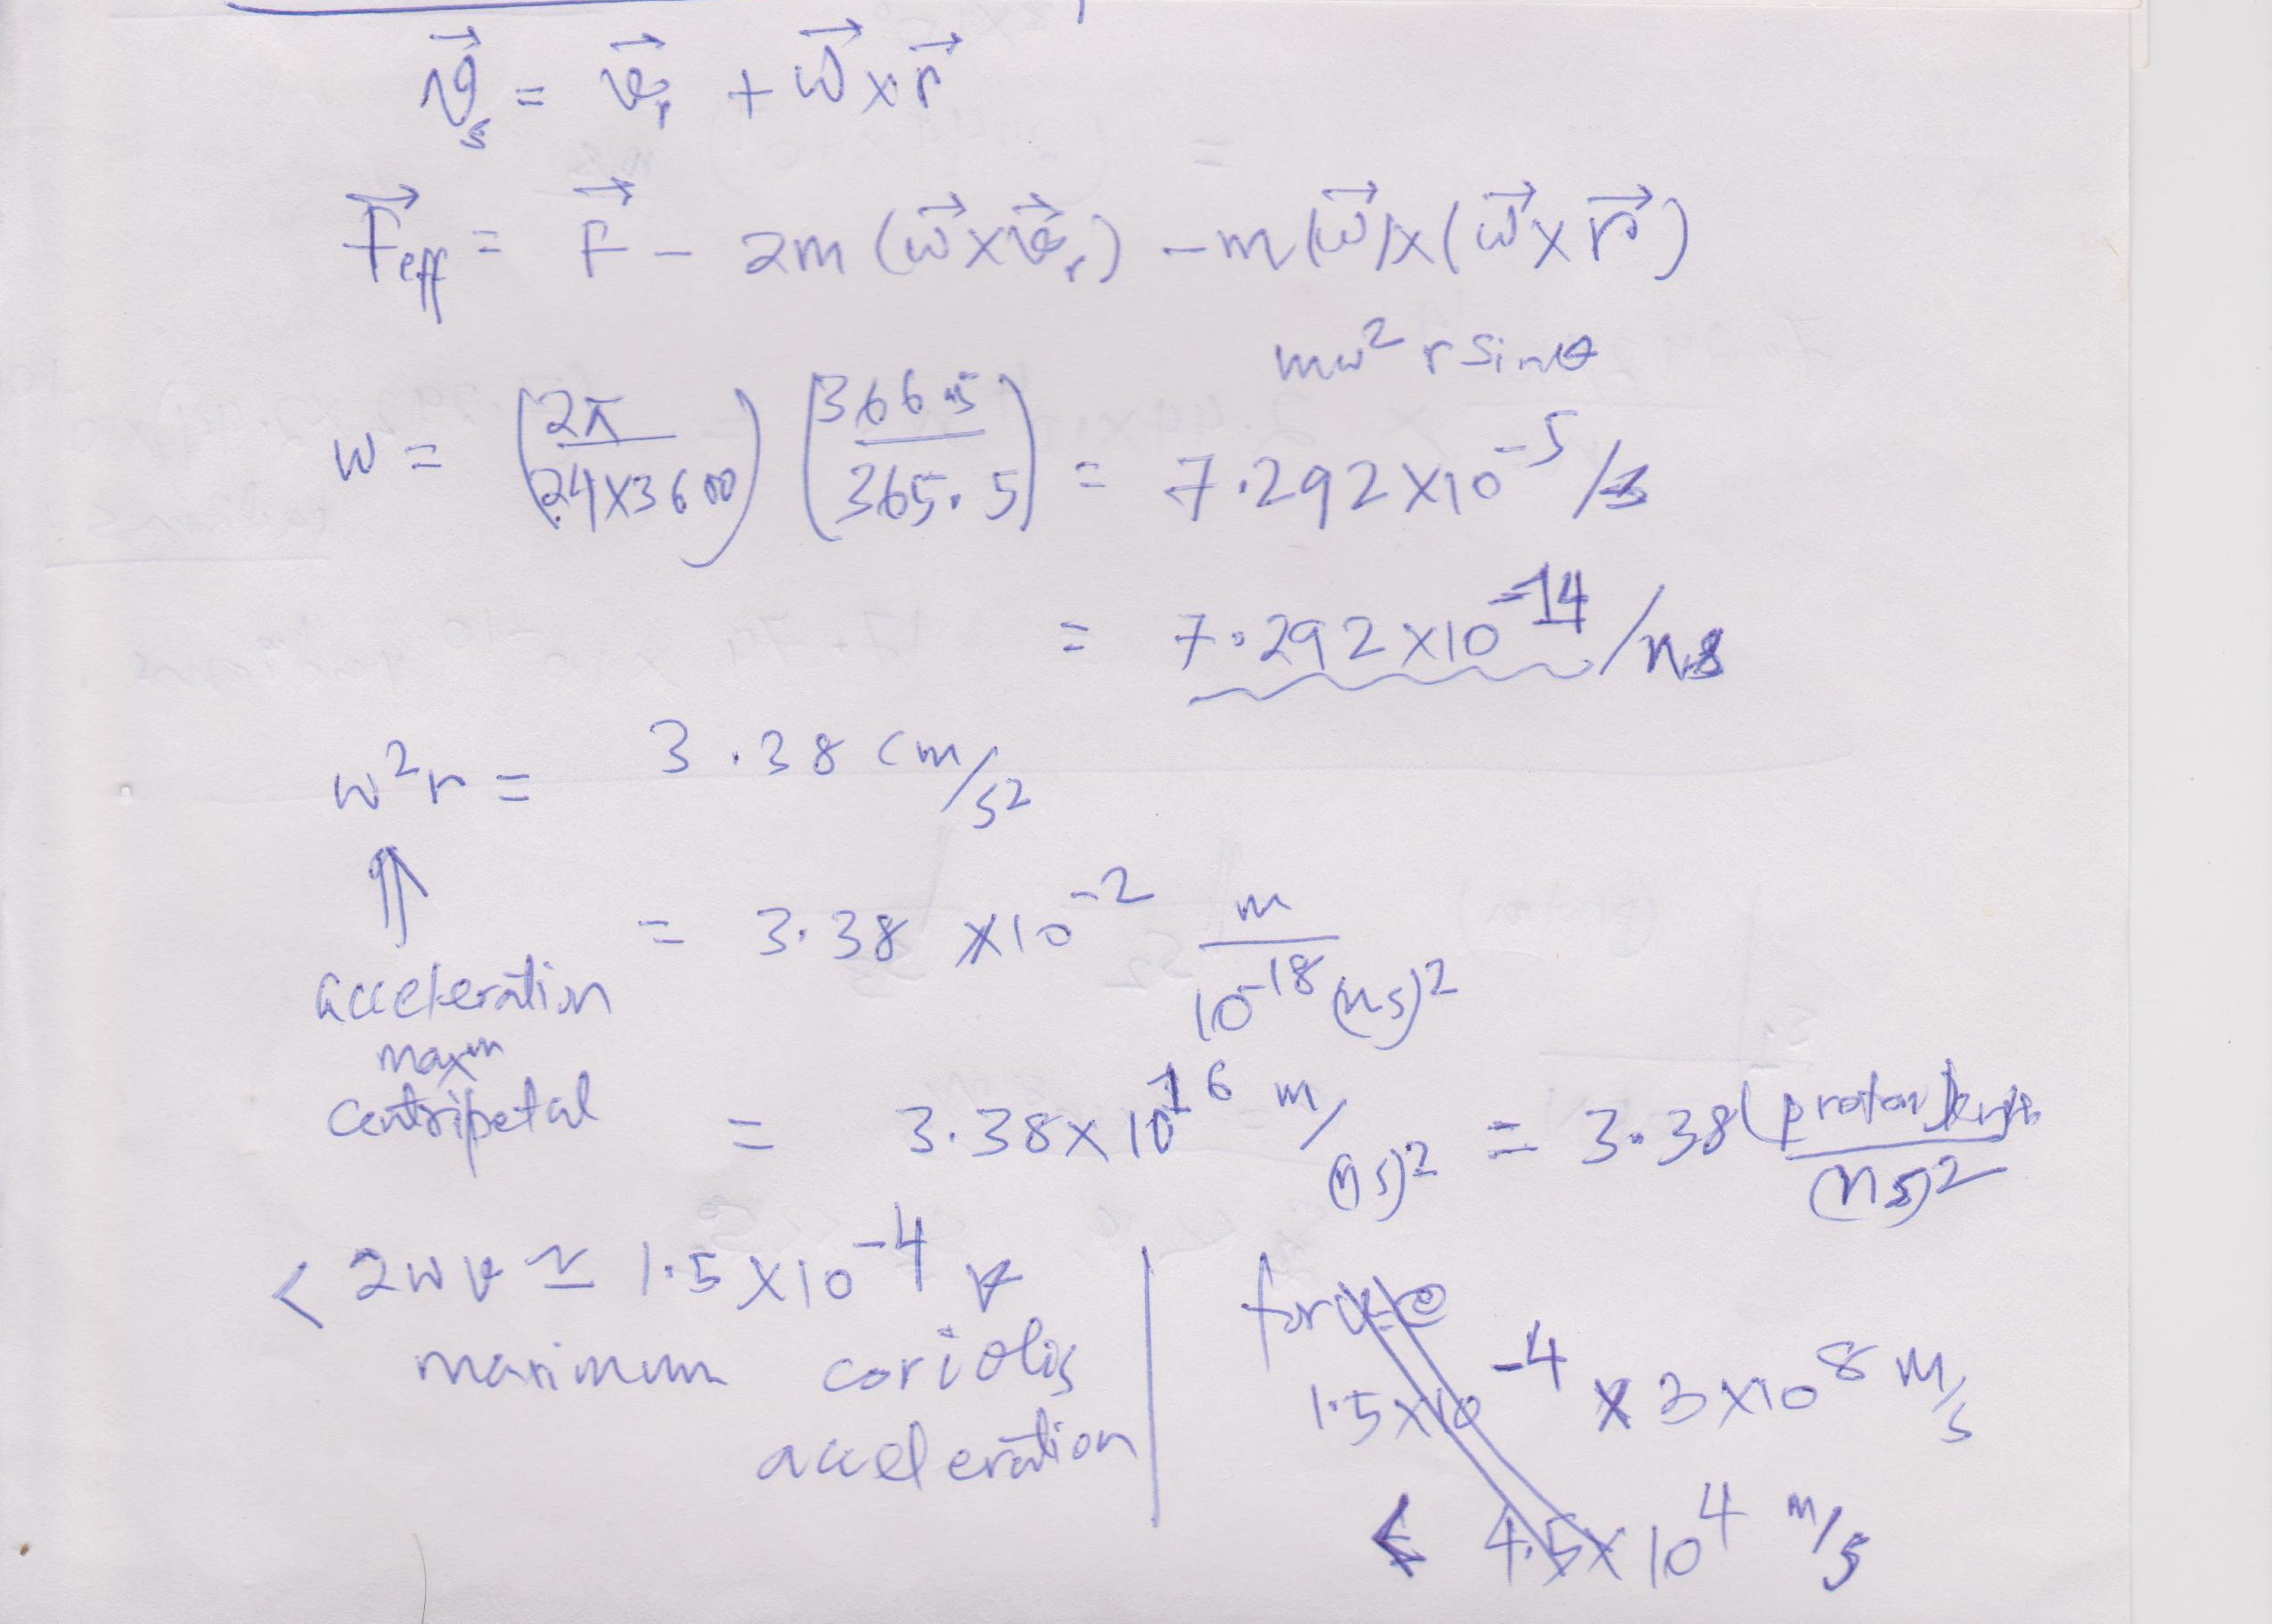 v⃗s = v⃗r + ω⃗ × r⃗
F⃗eff = F⃗ − 2m (ω⃗ × v⃗r) − m(ω⃗)×(ω⃗ × r⃗)
mω² r sinθ
ω = (2π / 24×3600) (366.5 / 365.5) = 7.292×10⁻⁵ /s
= 7.292×10⁻¹⁴ /ns
ω²r = 3.38 cm/s²
⇑
= 3.38 ×10⁻² m / 10⁻¹⁸ (ns)²
acceleration
maxm
centripetal
= 3.38×10¹⁶ m/(ns)² = 3.38 (proton) / (ns)²
< 2ωv ≃ 1.5×10⁻⁴ v
maximum coriolis
acceleration
for v=c
1.5×10⁻⁴ × 3×10⁸ m/s
< 4.5×10⁴ m/s